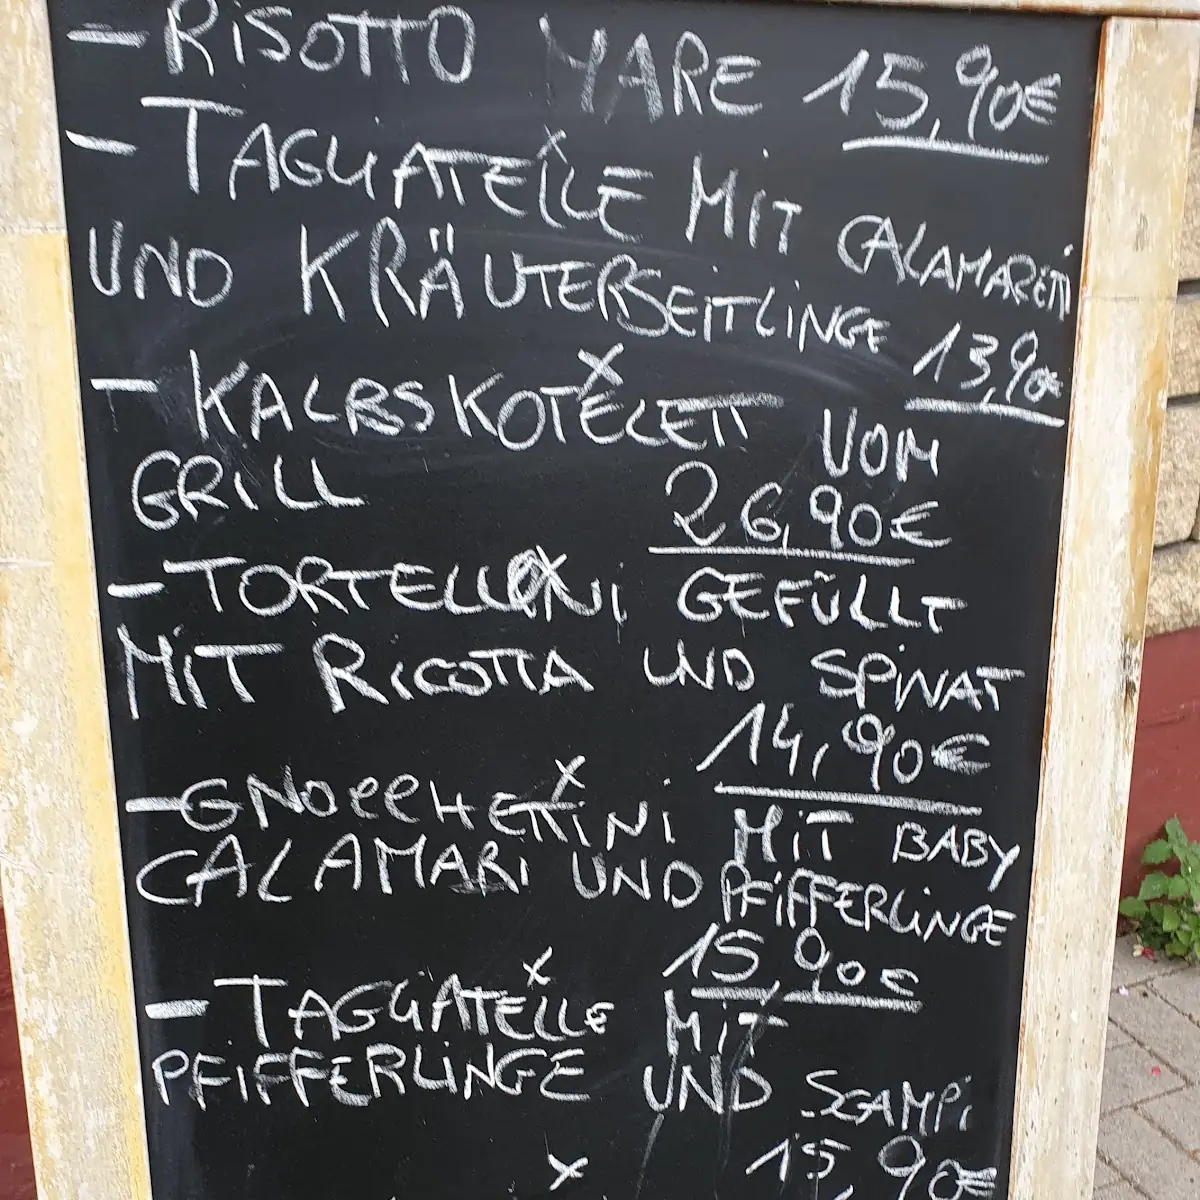 - RISOTTO MARE 15,90€
- TAGLIATELLE MIT CALAMARETTI
UND KRÄUTERSEITLINGE 13,90€
x
- KALBSKOTELETT VOM
GRILL 26,90€
x
- TORTELLONI GEFÜLLT
MIT RICOTTA UND SPINAT
14,90€
x
- GNOCCHETTINI MIT BABY
CALAMARI UND PFIFFERLINGE
15,90€
x
- TAGLIATELLE MIT
PFIFFERLINGE UND SCAMPI
15,90€
x